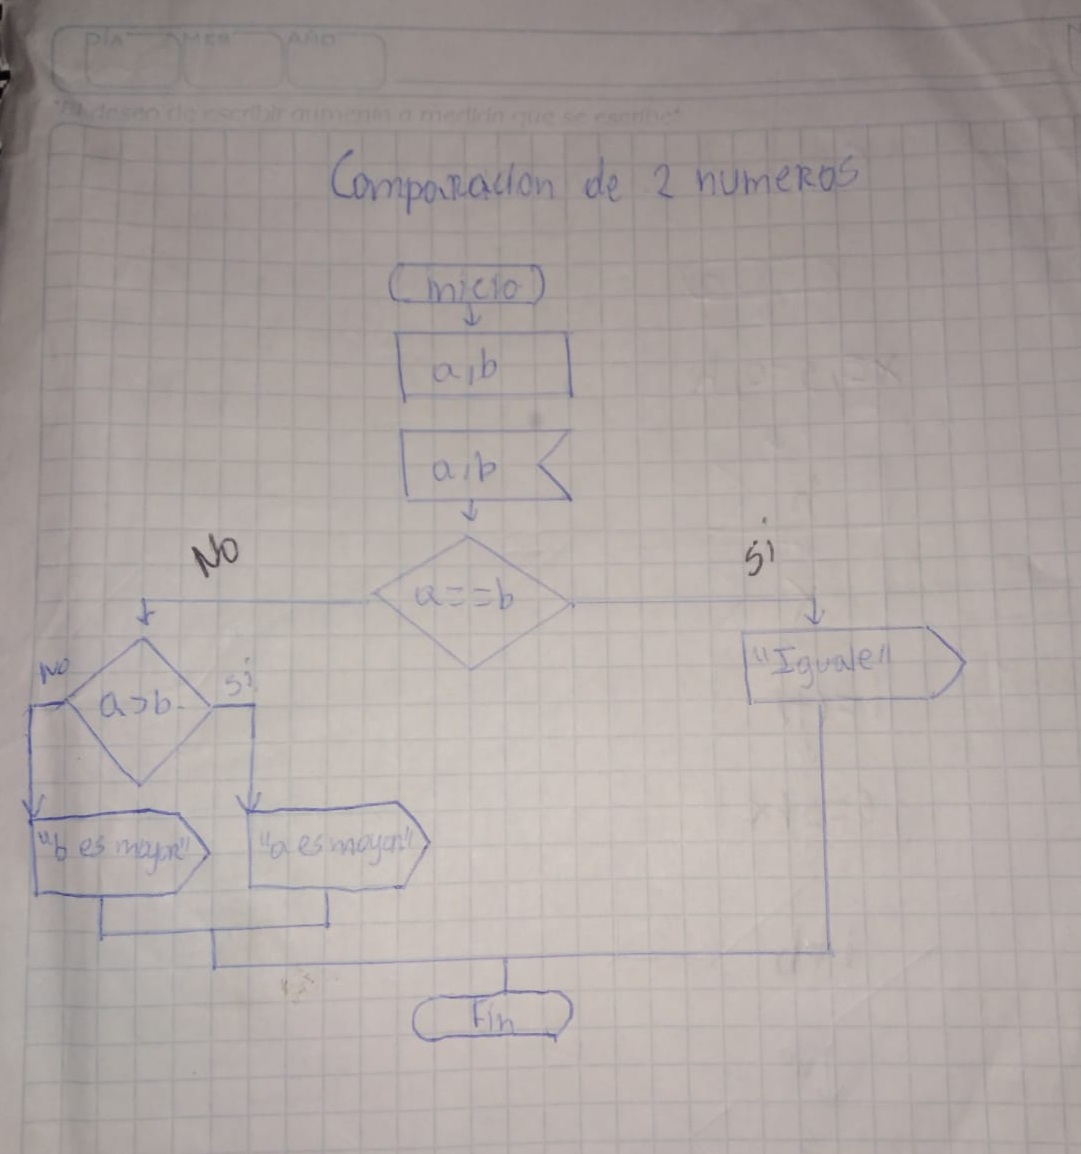 DIA MES AÑO
"El deseo de escribir aumenta a medida que se escribe"
Comparacion de 2 numeros
Inicio
a,b
a,b
No
si
a==b
"Iguale"
No
a>b
si
"b es mayor"
"a es mayor"
Fin